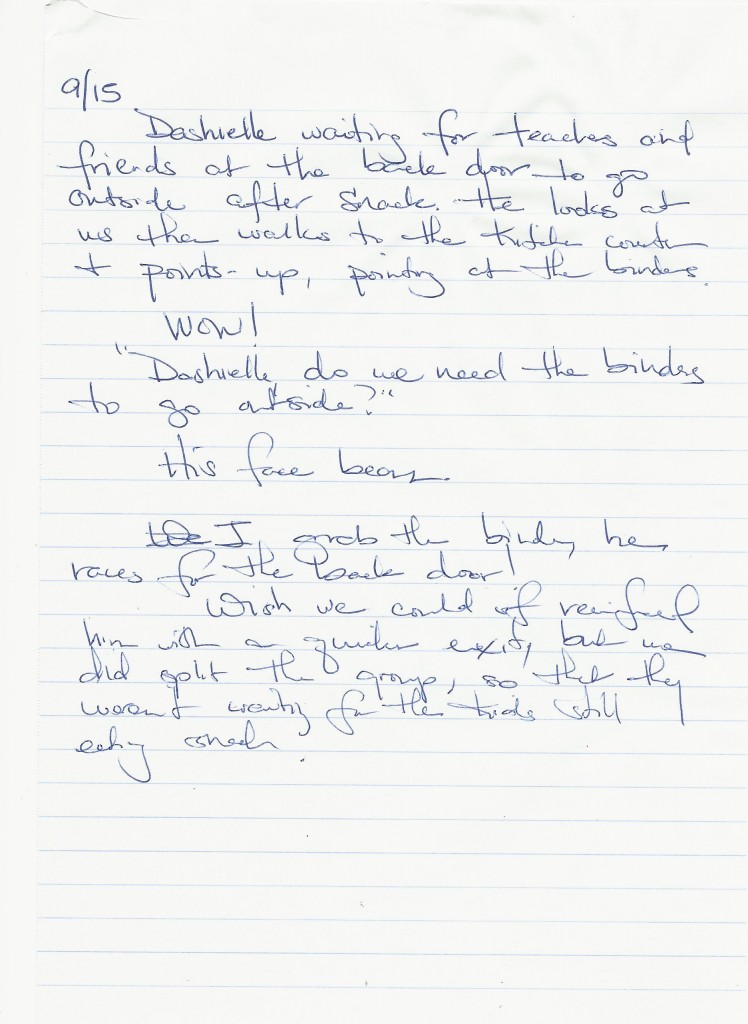 9/15
Dashielle waiting for teachers and
friends at the back door to go
outside after snack. He looks at
us then walks to the kitchen counter
+ points - up, pointing at the binders.
WOW!
"Dashielle, do we need the binders
to go outside?"
His face beams.
I grab the binders, he
races for the back door!
Wish we could of reinforced
him with a quicker exit, but we
did split the group, so that they
weren't waiting for the kids still
eating snack.